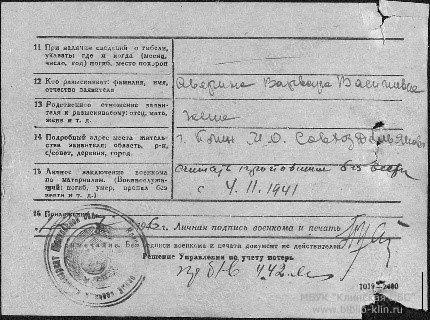 11 При наличии сведений о гибели,
указать: где и когда (месяц,
число, год) погиб, место похорон
12 Кто разыскивает: фамилия, имя,
отчество заявителя
Аверина Варвара Васильевна
13 Родственное отношение заяви-
теля к разыскиваемому: отец, мать,
жена и т. д.
жена
14 Подробный адрес места житель-
ства заявителя: область, р-н,
с/совет, деревня, город.
г. Клин М.О. Совхоз
15 Личное заключение военкома
по материалам. (Военнослужа-
щий: погиб, умер, пропал без
вести и т. д.)
считать пропавшим без вести
с 4.11.1941
16 Приложения
194 г. Личная подпись военкома и печать
Примечание. Без подписи военкома и печати документ не действителен
Решение Управления по учету потерь
www.biblio-klin.ru